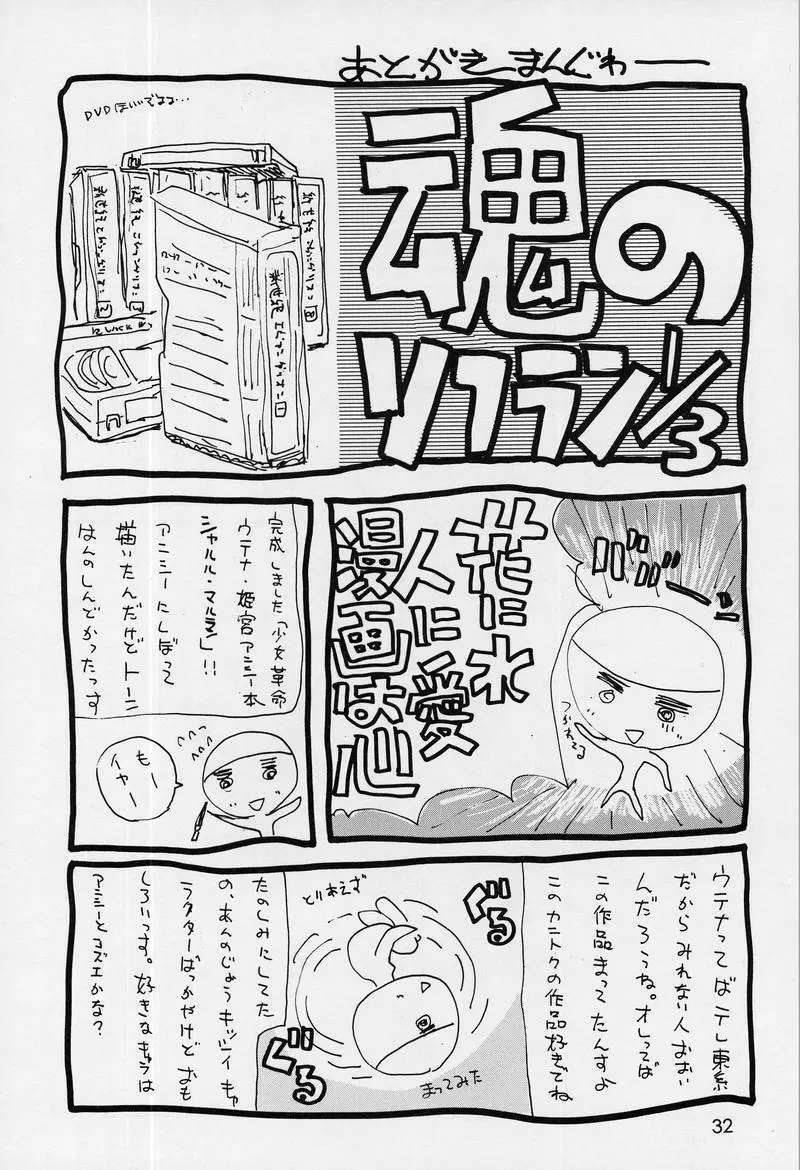 あとがきまんぐわー
DVDほしいでまる…
魂の
ソフラン1/3
新世紀エヴァンゲリオン1
2
3
8
花に水
人に愛
漫画は心
バババーン
つかれてる
完成しました「少女革命
ウテナ・姫宮アンシー本
シャルル・マルラン」!!
アンシーにしぼって
描いたんだけどトーン
はんのしんどかったっす
もー
イヤー
ウテナってばテレ東系
だからみれない人おおい
んだろうね。オレってば
この作品まってたんすよ
このカントクの作品好きでね
ぐる
とりあえず
まってみた
ぐる
たのしみにしてた
の、あんのじょうキッツイキャ
ラクターばっかやけどおも
しろいっす。好きなキャラは
アンシーとコズエかな?
32